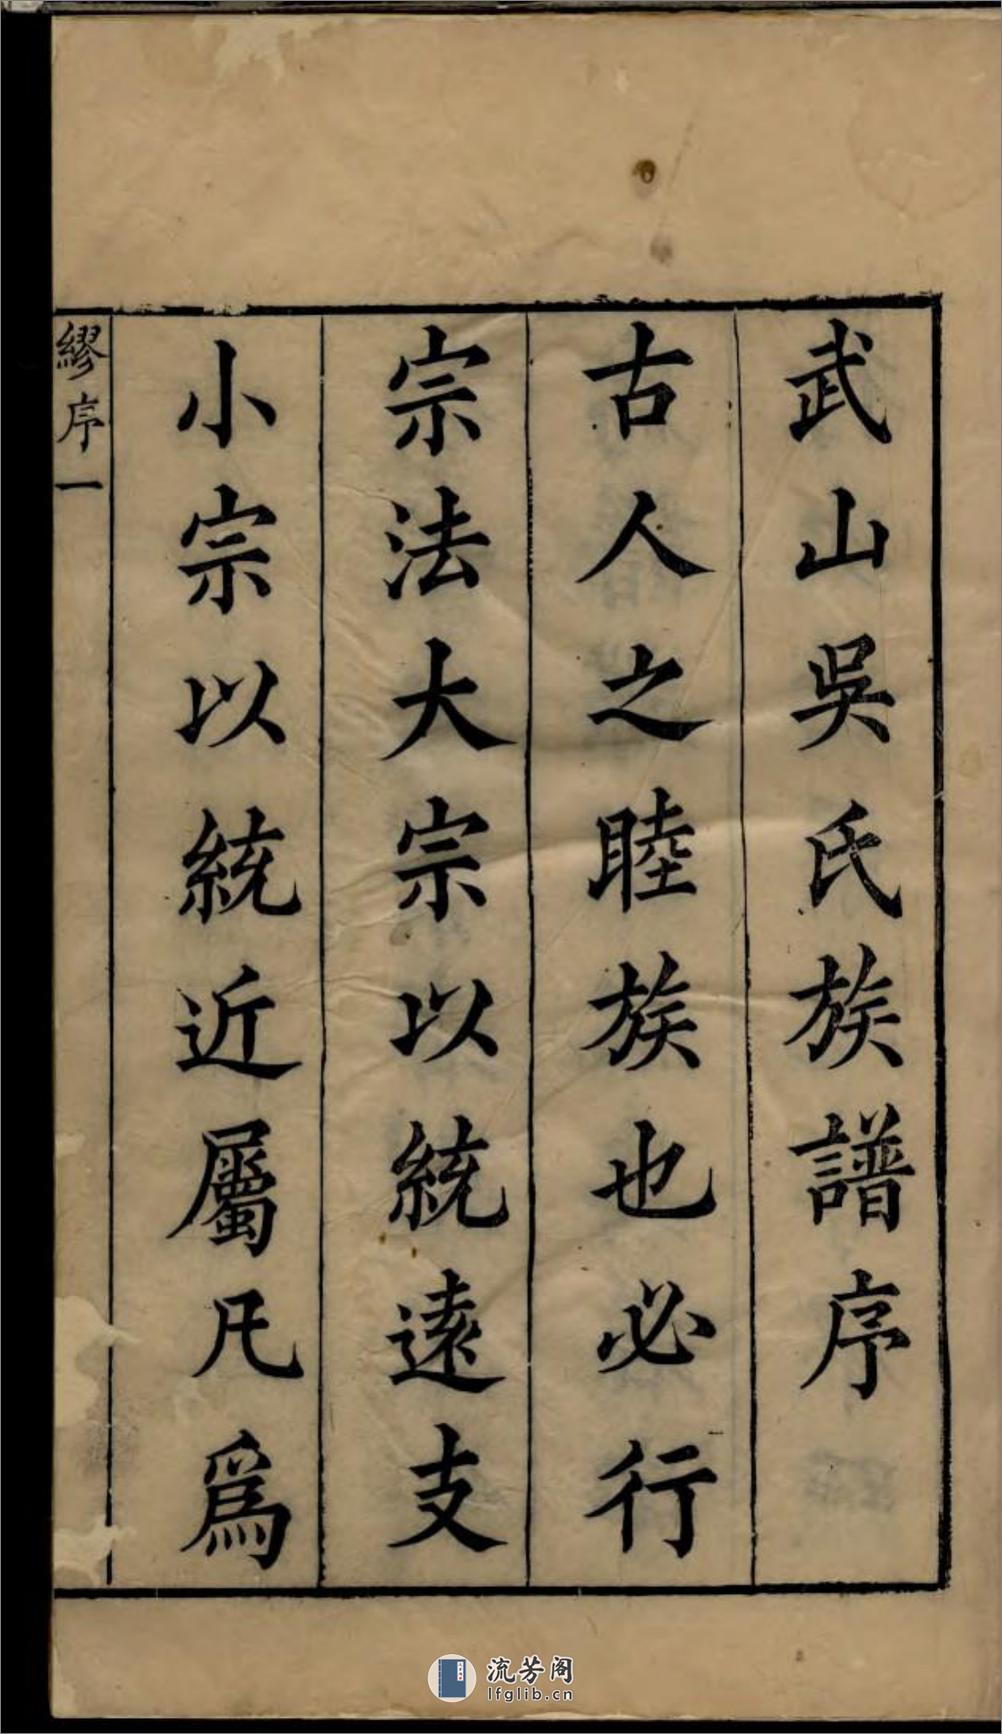 武山吳氏族譜序
古人之睦族也必行
宗法大宗以統遠支
小宗以統近屬凡爲
繆序一
流芳阁
lfglib.cn